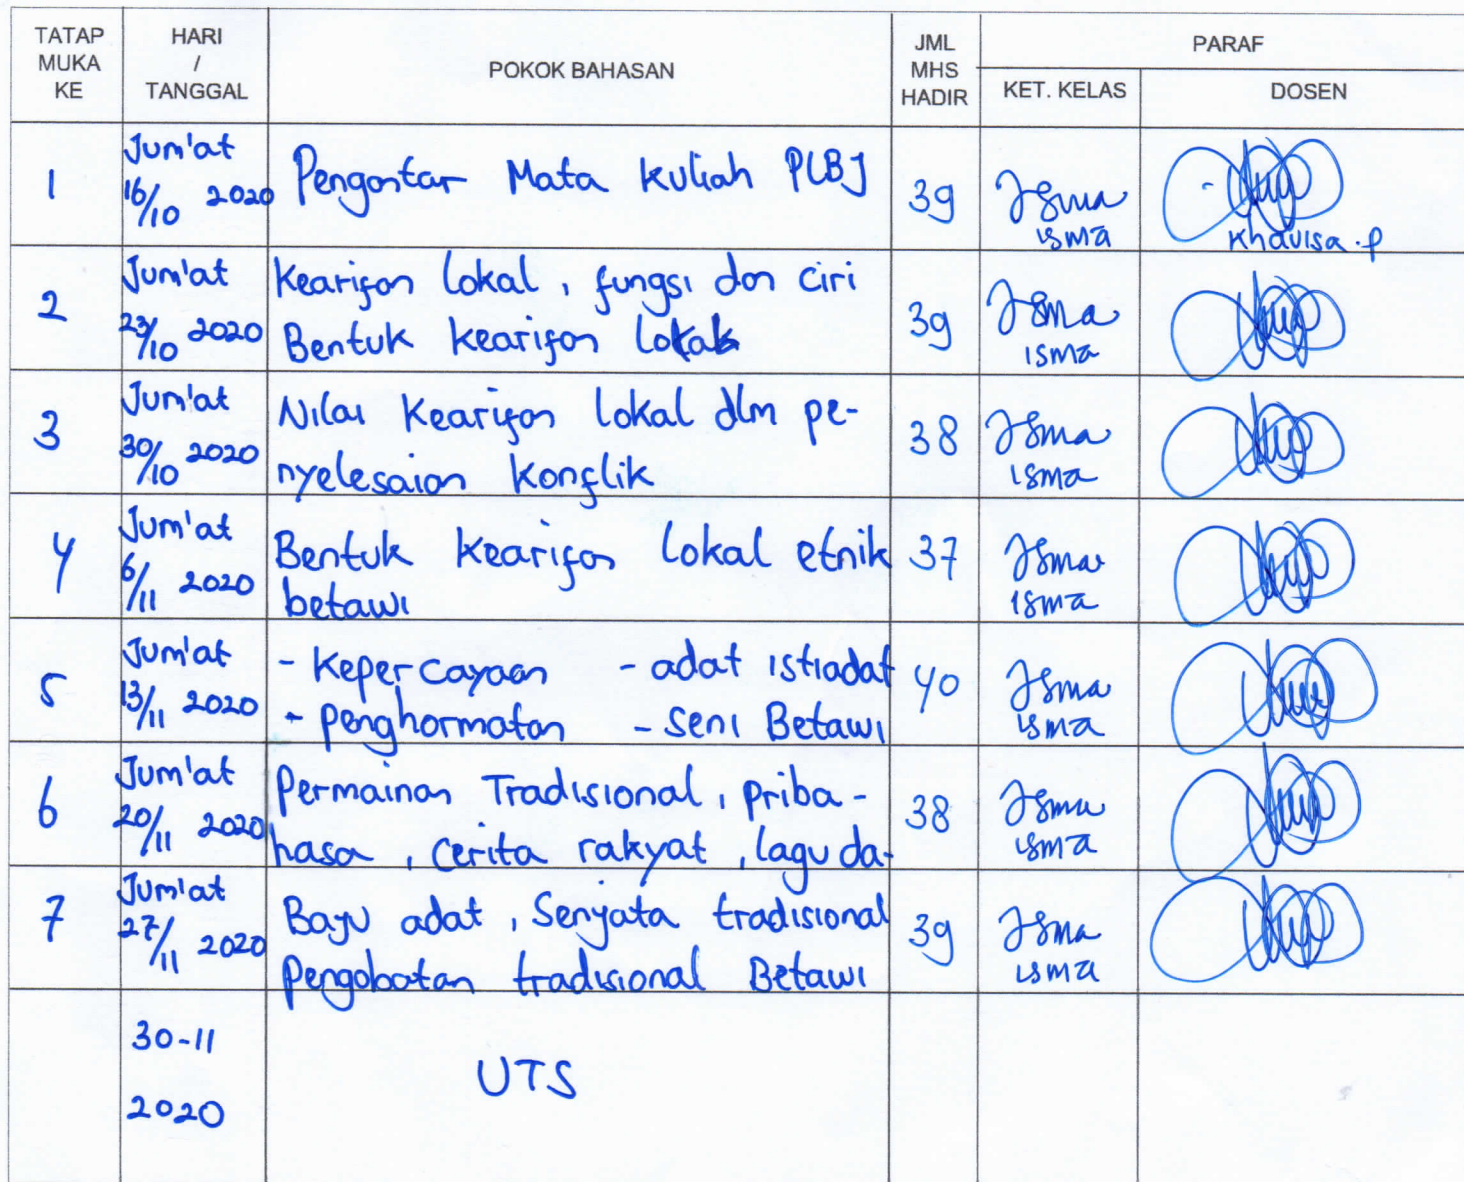 TATAP MUKA KE HARI / TANGGAL POKOK BAHASAN JML MHS HADIR PARAF
KET. KELAS DOSEN
1 Jum'at 16/10 2020 Pengantar Mata Kuliah PLBJ 39 Isma
isma Khavisa.p
2 Jum'at 23/10 2020 Kearifan lokal, fungsi dan ciri 39 Isma
Bentuk kearifan lokal isma
3 Jum'at 30/10 2020 Nilai Kearifan lokal dlm pe- 38 Isma
nyelesaian Konflik isma
4 Jum'at 6/11 2020 Bentuk Kearifan lokal etnik 37 Isma
betawi isma
5 Jum'at 13/11 2020 - Kepercayaan - adat istiadat 40 Isma
- penghormatan - seni Betawi isma
6 Jum'at 20/11 2020 Permainan Tradisional, priba- 38 Isma
hasa, cerita rakyat, lagu da- isma
7 Jum'at 27/11 2020 Baju adat, Senjata tradisional 39 Isma
Pengobatan tradisional Betawi isma
30-11
2020
UTS